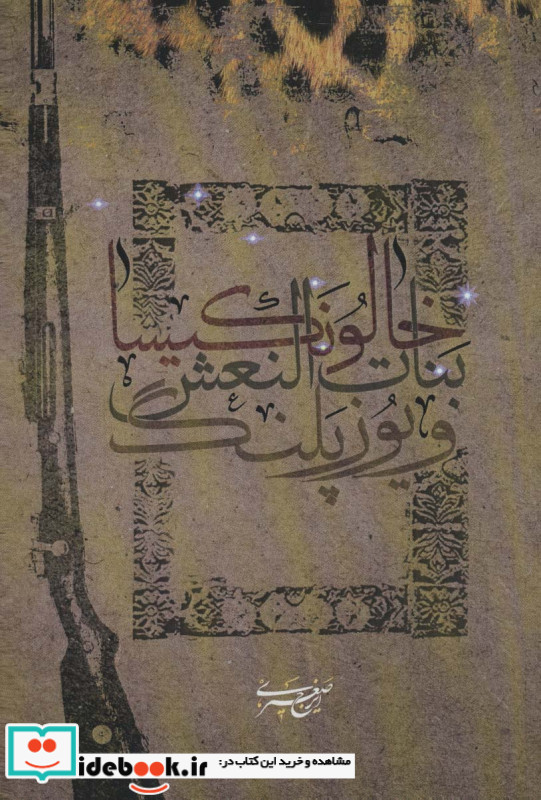 خالونکیسا
بنات النعش
و یوزپلنگ
ایرج صغیری
مشاهده و خرید این کتاب در:
idebook.ir